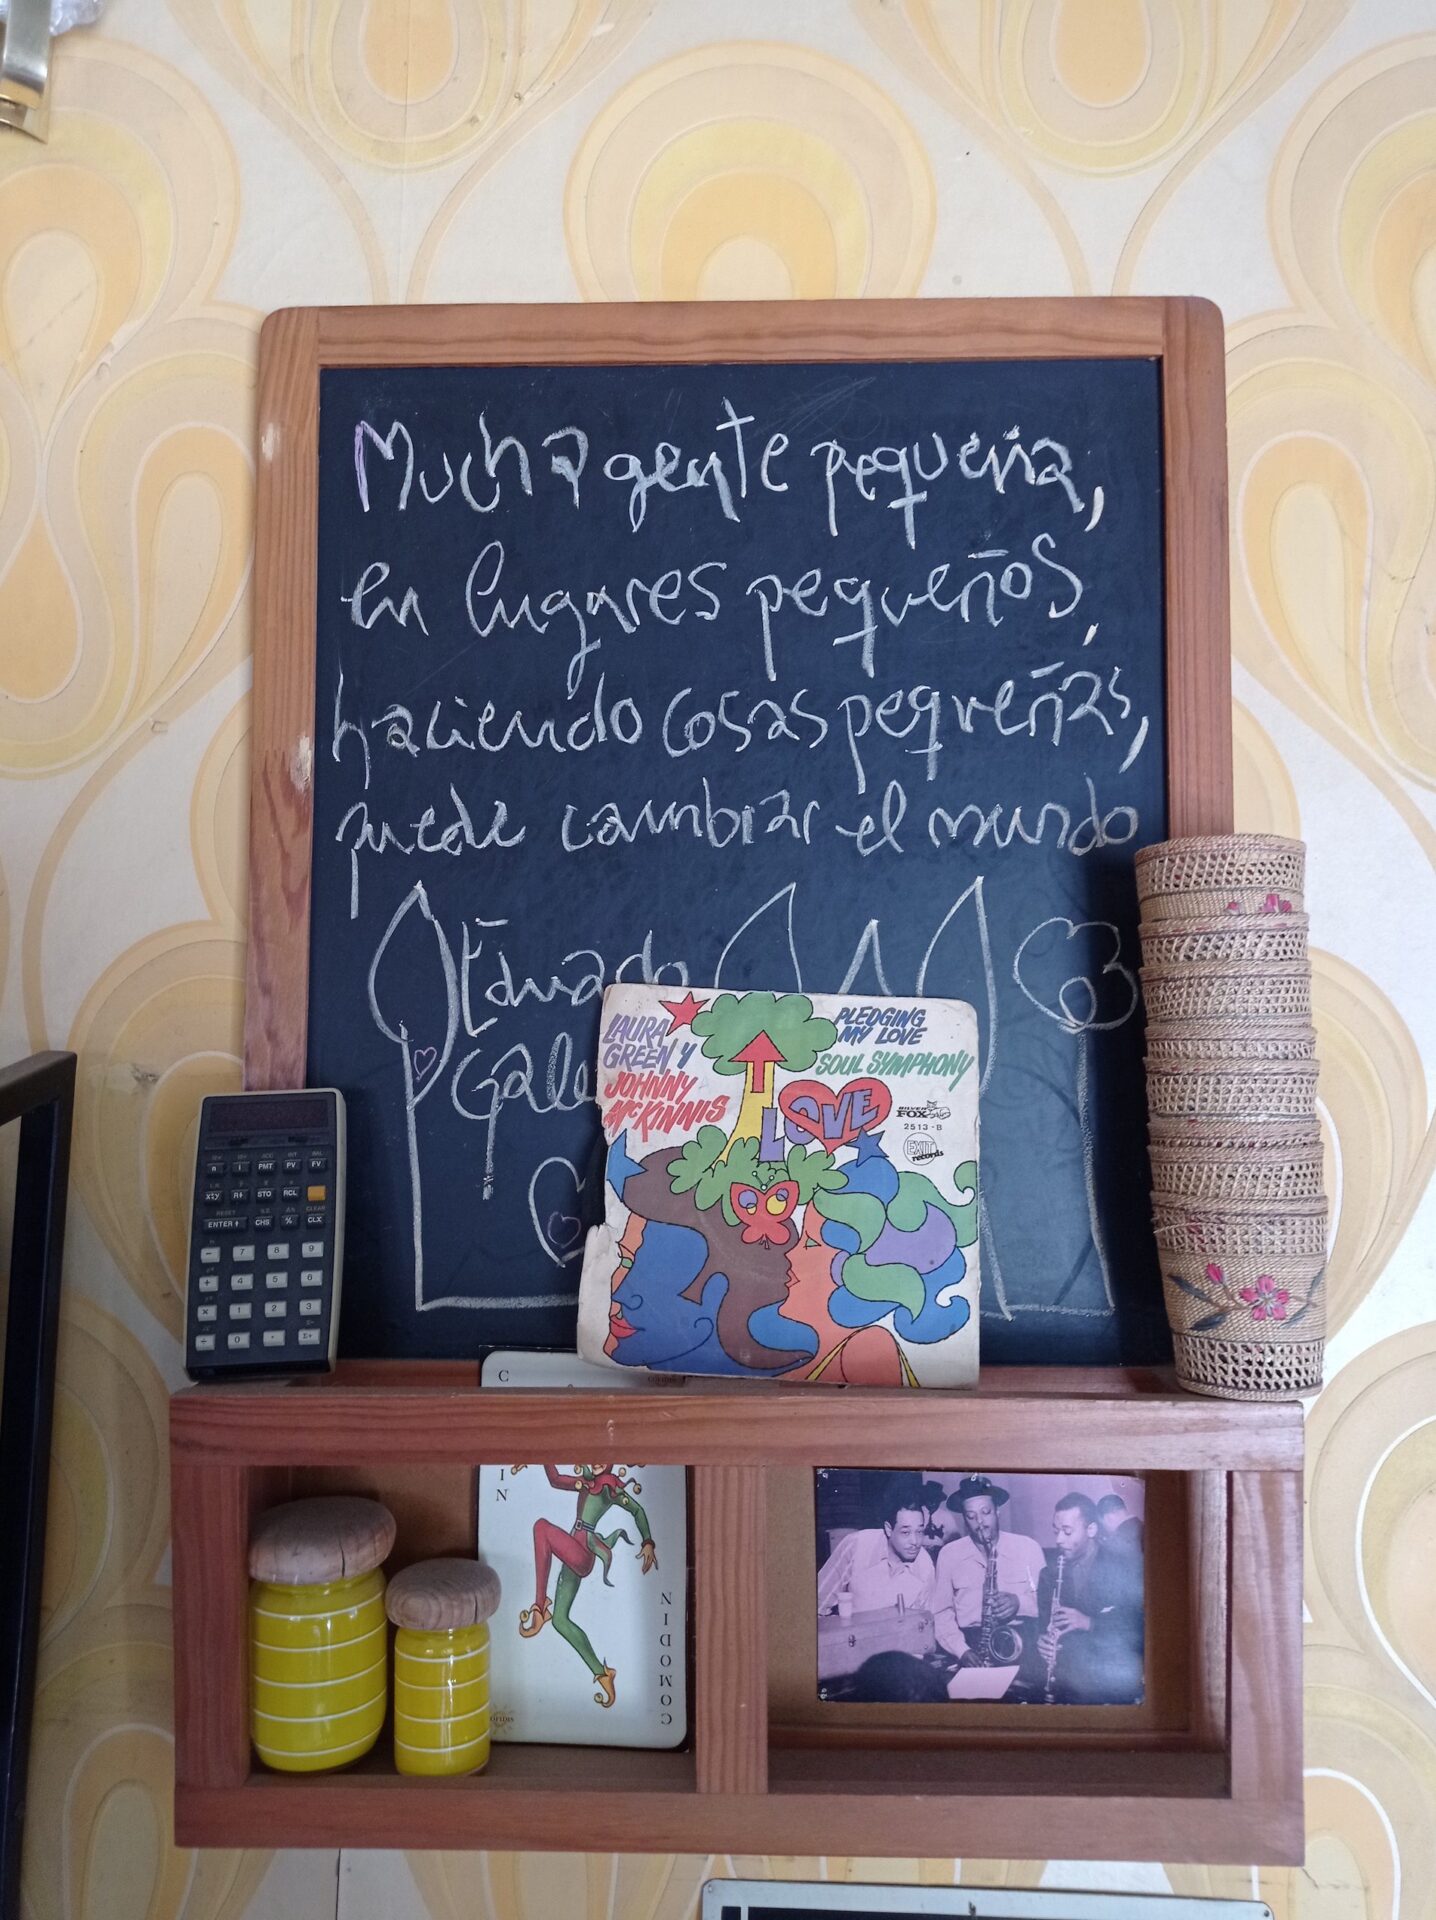 Mucha gente pequeña,
en lugares pequeños,
haciendo cosas pequeñas,
puede cambiar el mundo
Eduardo
Gale
LAURA
GREEN Y
JOHNNY
McKINNIS
PLEDGING
MY LOVE
SOUL SYMPHONY
LOVE
SILVER
FOX
2513-B
EXIT
records
n i PMT PV FV
x≷y R↓ STO RCL
RESET
CLEAR
ENTER↑ CHS % CLX
− 7 8 9
+ 4 5 6
× 1 2 3
÷ 0 · Σ+
C
IN
COMODIN